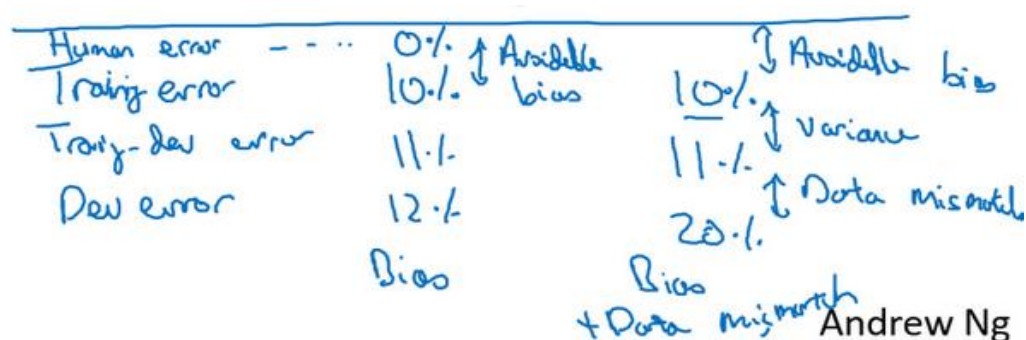 Human error ---.. 0% ↕ Avoidable bias ↕ Avoidable bias
Training error 10% 10%
↕ Variance
Training-dev error 11% 11%
↕ Data mismatch
Dev error 12% 20%
Bias Bias
+ Data mismatch
Andrew Ng